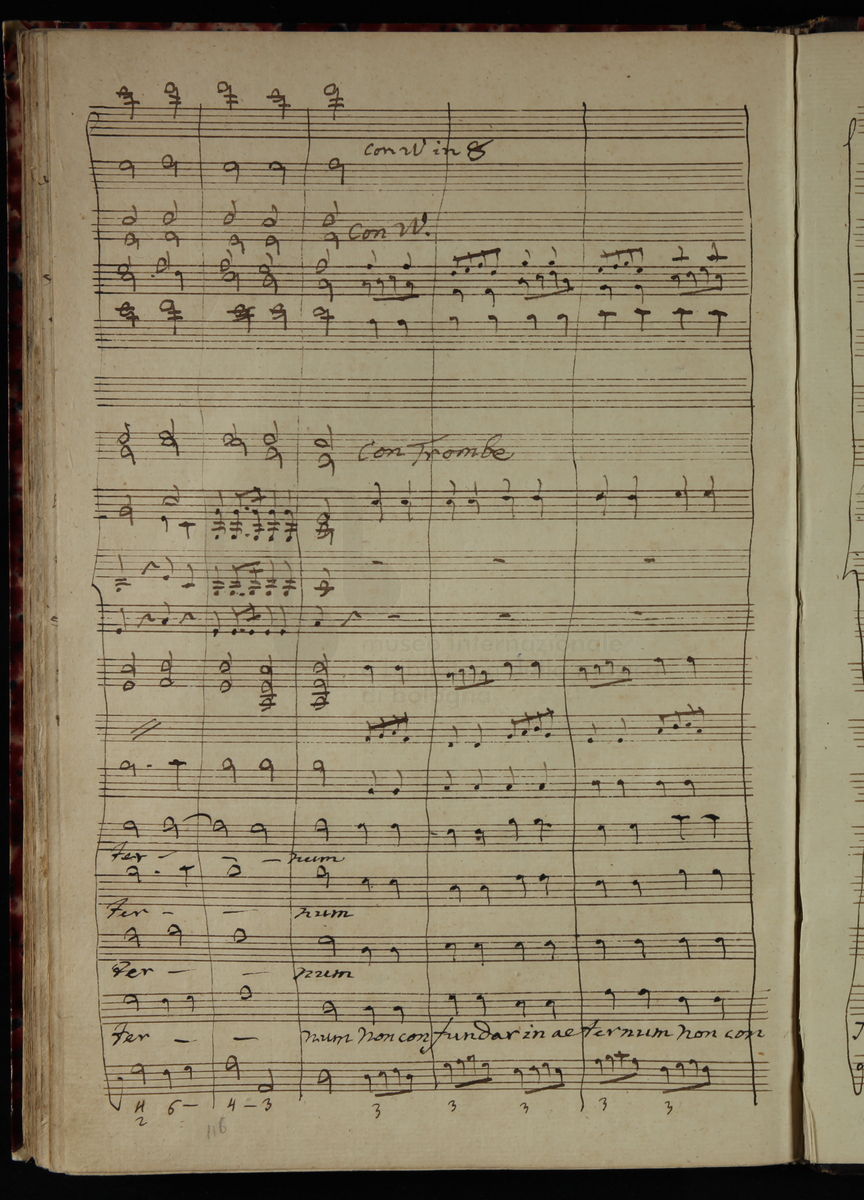 Con VV in 8
Con VV.
Con Trombe
museo internazionale
di bologna
ter - - - num
ter - - num
ter - - num
ter - - num non con fundar in ae ternum non con
4 6 - 4 - 3 3 3 3 3 3
2
116